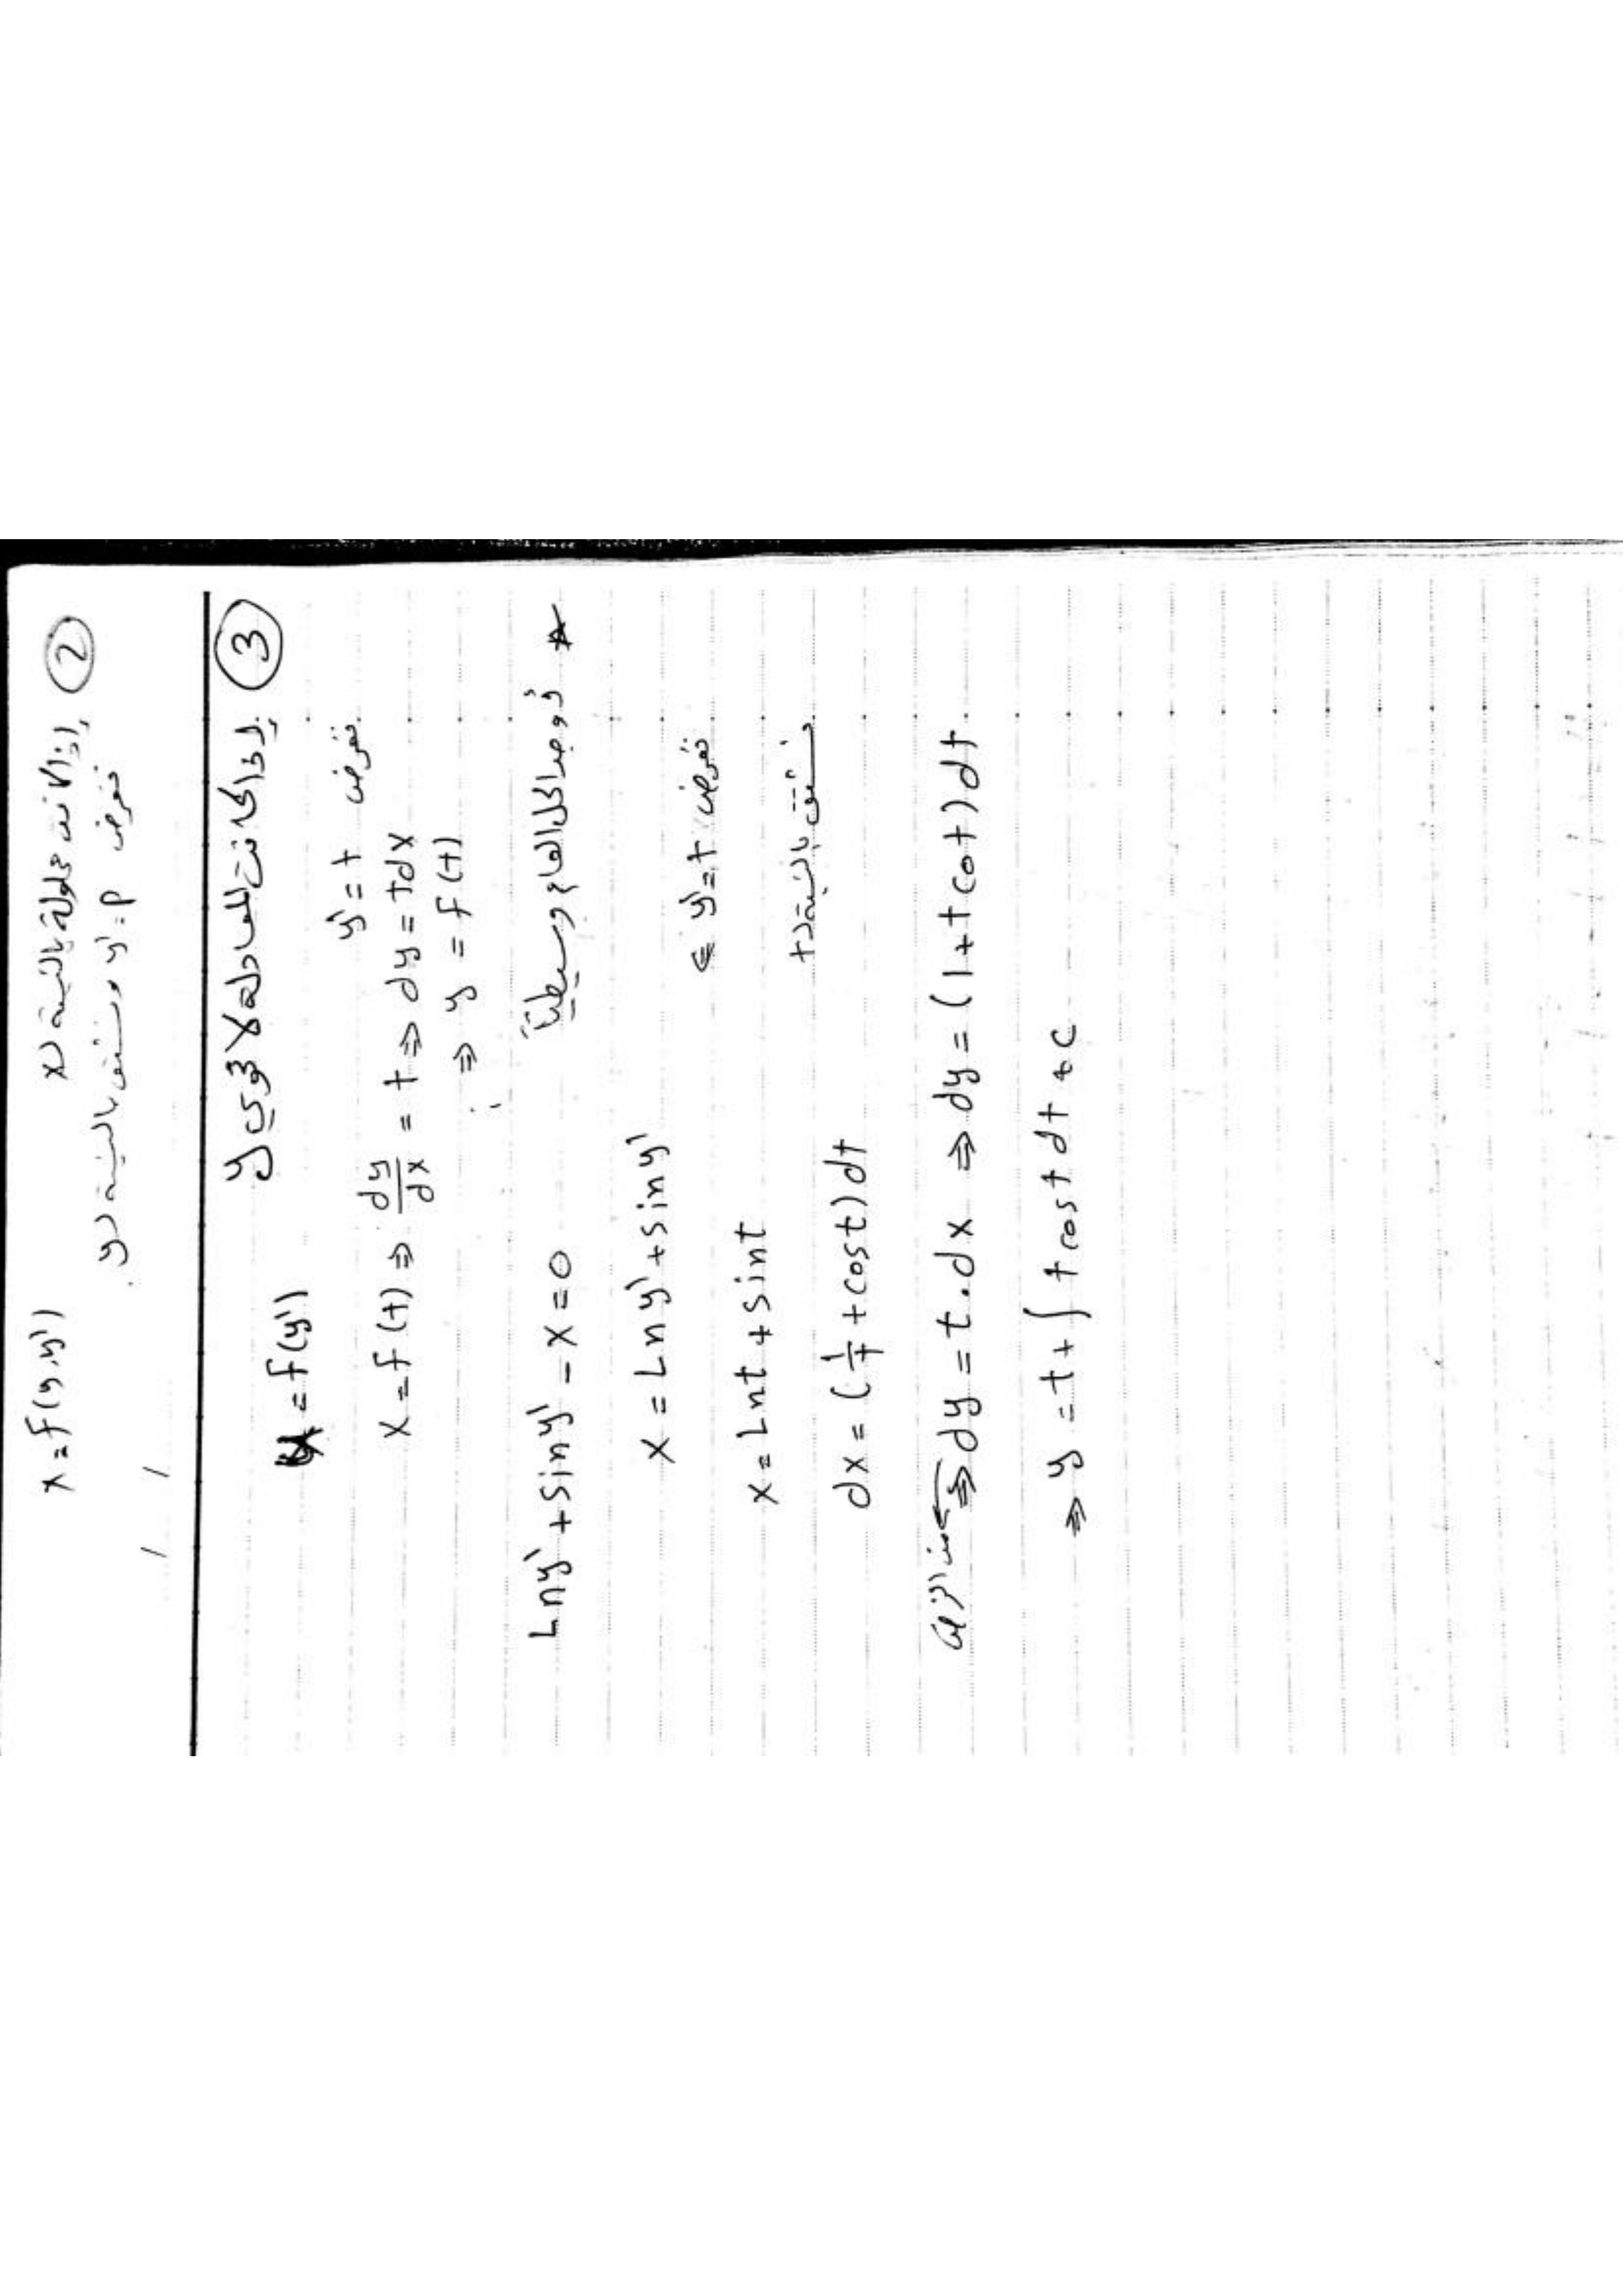 ② إذا كانت محلولة بالنسبة لـ x x = f(y, y')
نفرض y' = p ونشتق بالنسبة لـ y.
/ /
③ إذا كانت المعادلة لا تحوي y
x = f(y')
نفرض y' = t
x = f(t) ⇒ dy/dx = t ⇒ dy = t dx
⇒ y = f(t)
* أوجد الحل العام وسيطياً Lny' + siny' - x = 0
x = Lny' + siny'
نفرض y' = t ⇐
x = Lnt + sint
نشتق بالنسبة لـ t
dx = (1/t + cost) dt
من الفرض ⇒ dy = t . dx ⇒ dy = (1 + t cot) dt
⇒ y = t + ∫ t cost dt + c